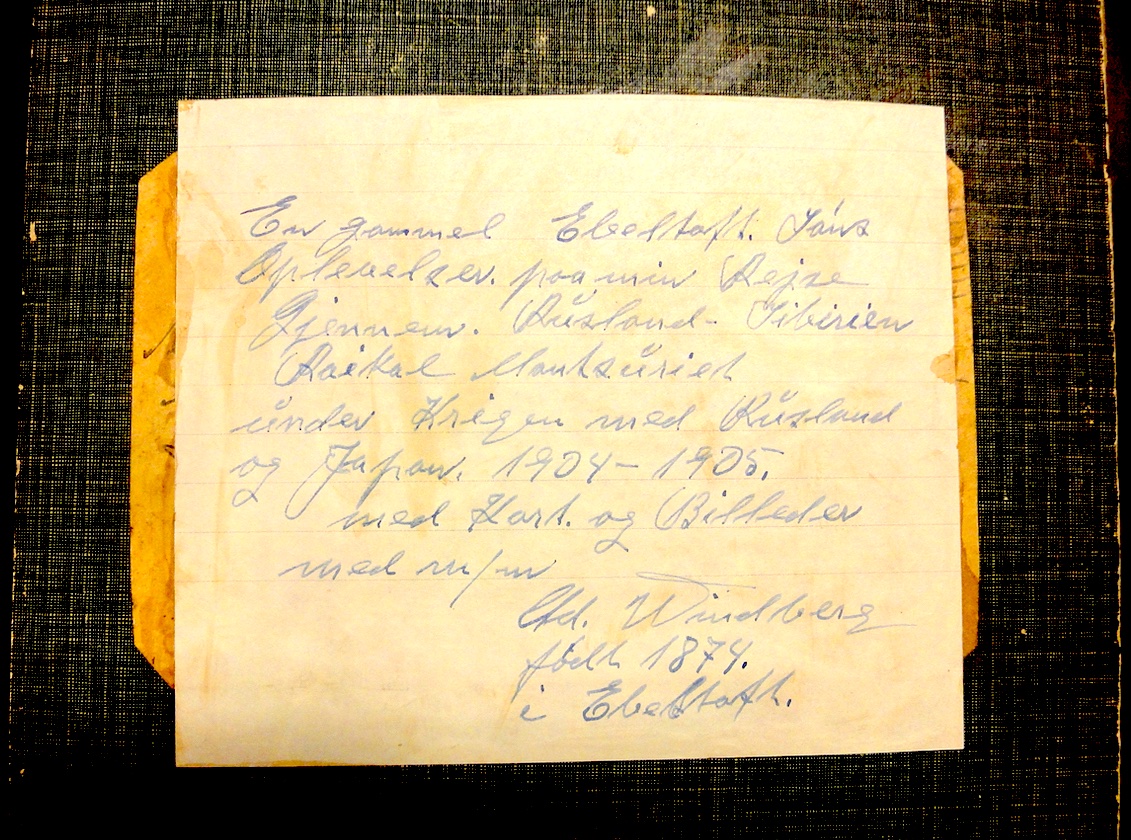 En gammel Ebeltoft. Søns
Oplevelser. paa min Rejse
Gjennem. Rusland- Sibirien
Baikal Mantsuriet
under Krigen med Rusland
og Japan. 1904-1905.
med Kort. og Billeder
med m/m
Windberg
født 1874.
i Ebeltoft.